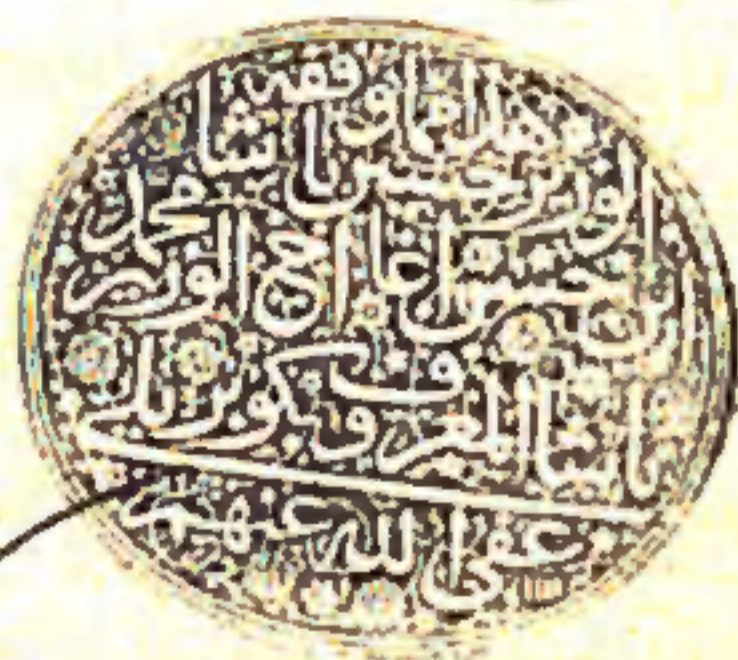 هذا مما وقفه
الوزير حسين باشا
بن حسن اغا اخي الوزير محمد
باشا المعروف بكوپريلي
عفى الله عنهم